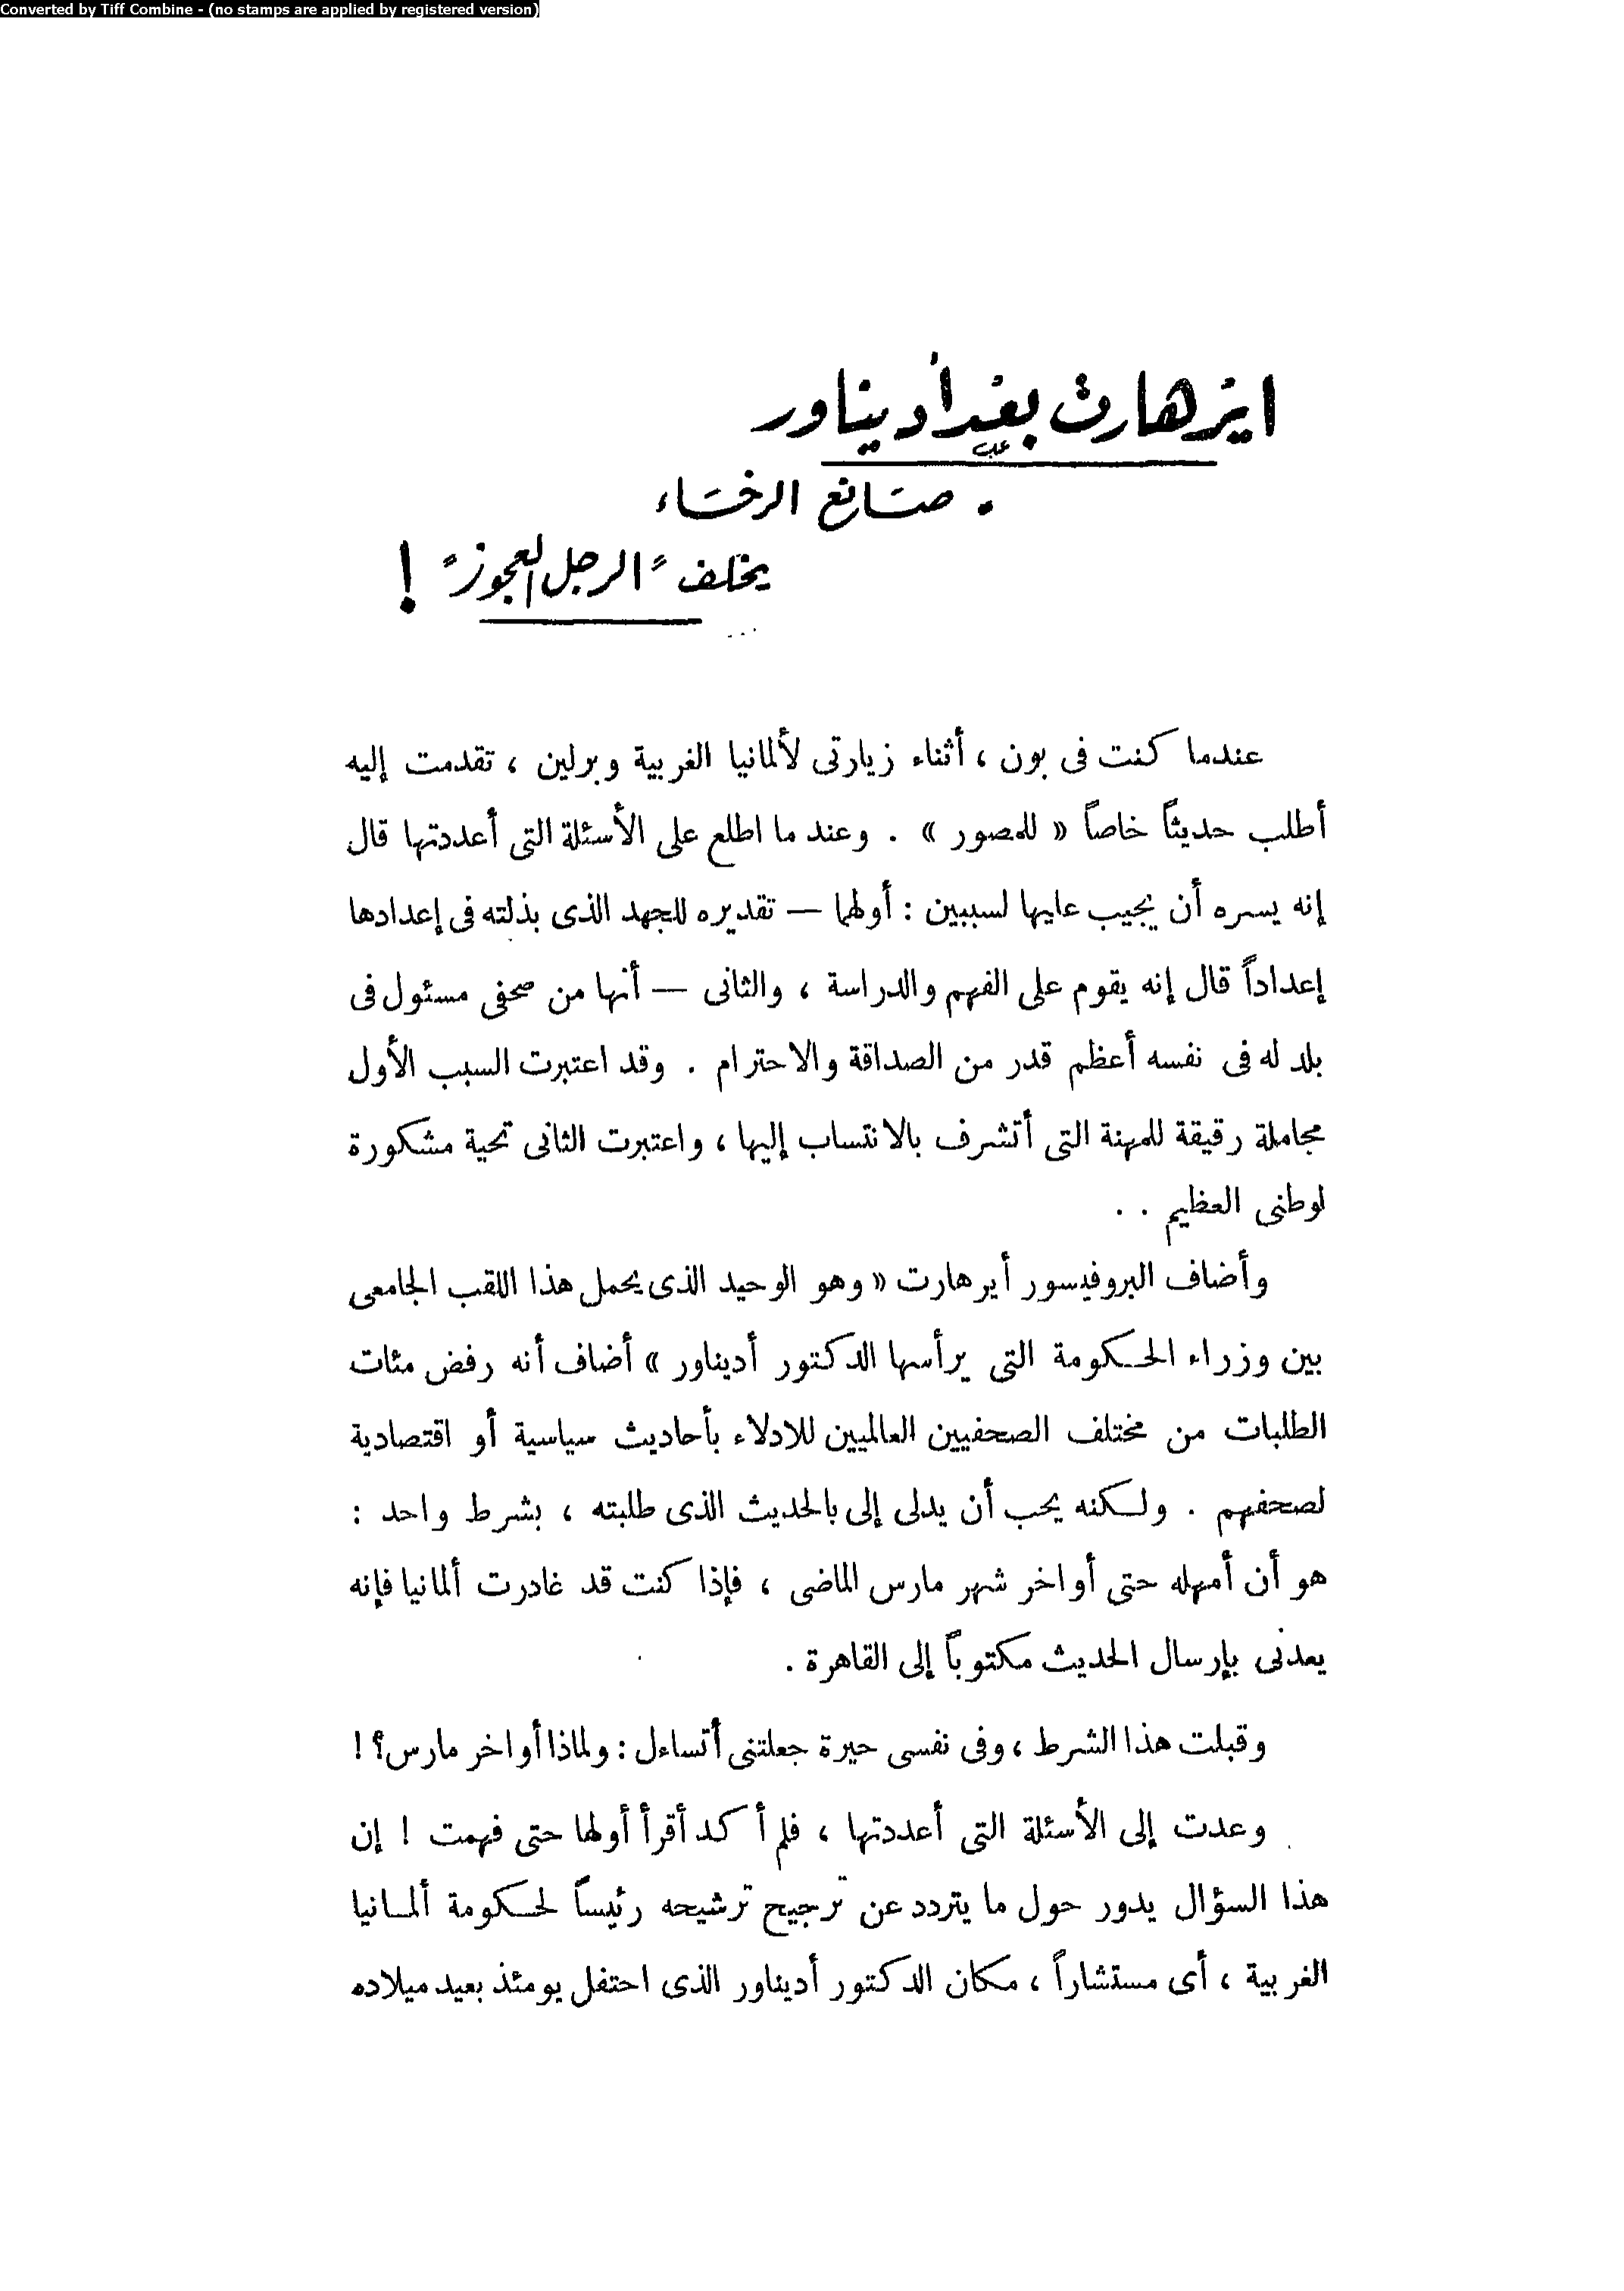 Converted by Tiff Combine - (no stamps are applied by registered version)
ايرهارت بعد أديناور
• صانع الرخاء
يخلف "الرجل العجوز" !
عندما كنت فى بون ، أثناء زيارتى لألمانيا الغربية وبرلين ، تقدمت إليه
أطلب حديثاً خاصاً « للمصور » . وعند ما اطلع على الأسئلة التى أعددتها قال
إنه يسره أن يجيب عليها لسببين : أولها — تقديره للجهد الذى بذلته فى إعدادها
إعداداً قال إنه يقوم على الفهم والدراسة ، والثانى — أنها من صحفى مسئول فى
بلد له فى نفسه أعظم قدر من الصداقة والاحترام . وقد اعتبرت السبب الأول
مجاملة رقيقة للمهنة التى أتشرف بالانتساب إليها ، واعتبرت الثانى تحية مشكورة
لوطنى العظيم . .
وأضاف البروفيسور أيرهارت « وهو الوحيد الذى يحمل هذا اللقب الجامعى
بين وزراء الحكومة التى يرأسها الدكتور أديناور » أضاف أنه رفض مئات
الطلبات من مختلف الصحفيين العالميين للادلاء بأحاديث سياسية أو اقتصادية
لصحفهم . ولكنه يحب أن يدلى إلى بالحديث الذى طلبته ، بشرط واحد :
هو أن أمهله حتى أواخر شهر مارس الماضى ، فإذا كنت قد غادرت ألمانيا فإنه
يعدنى بإرسال الحديث مكتوباً إلى القاهرة .
وقبلت هذا الشرط ، وفى نفسى حيرة جعلتنى أتساءل : ولماذا أواخر مارس؟ !
وعدت إلى الأسئلة التى أعددتها ، فلم أكد أقرأ أولها حتى فهمت ! إن
هذا السؤال يدور حول ما يتردد عن ترجيح ترشيحه رئيساً لحكومة ألمانيا
الغربية ، أى مستشاراً ، مكان الدكتور أديناور الذى احتفل يومئذ بعيد ميلاده